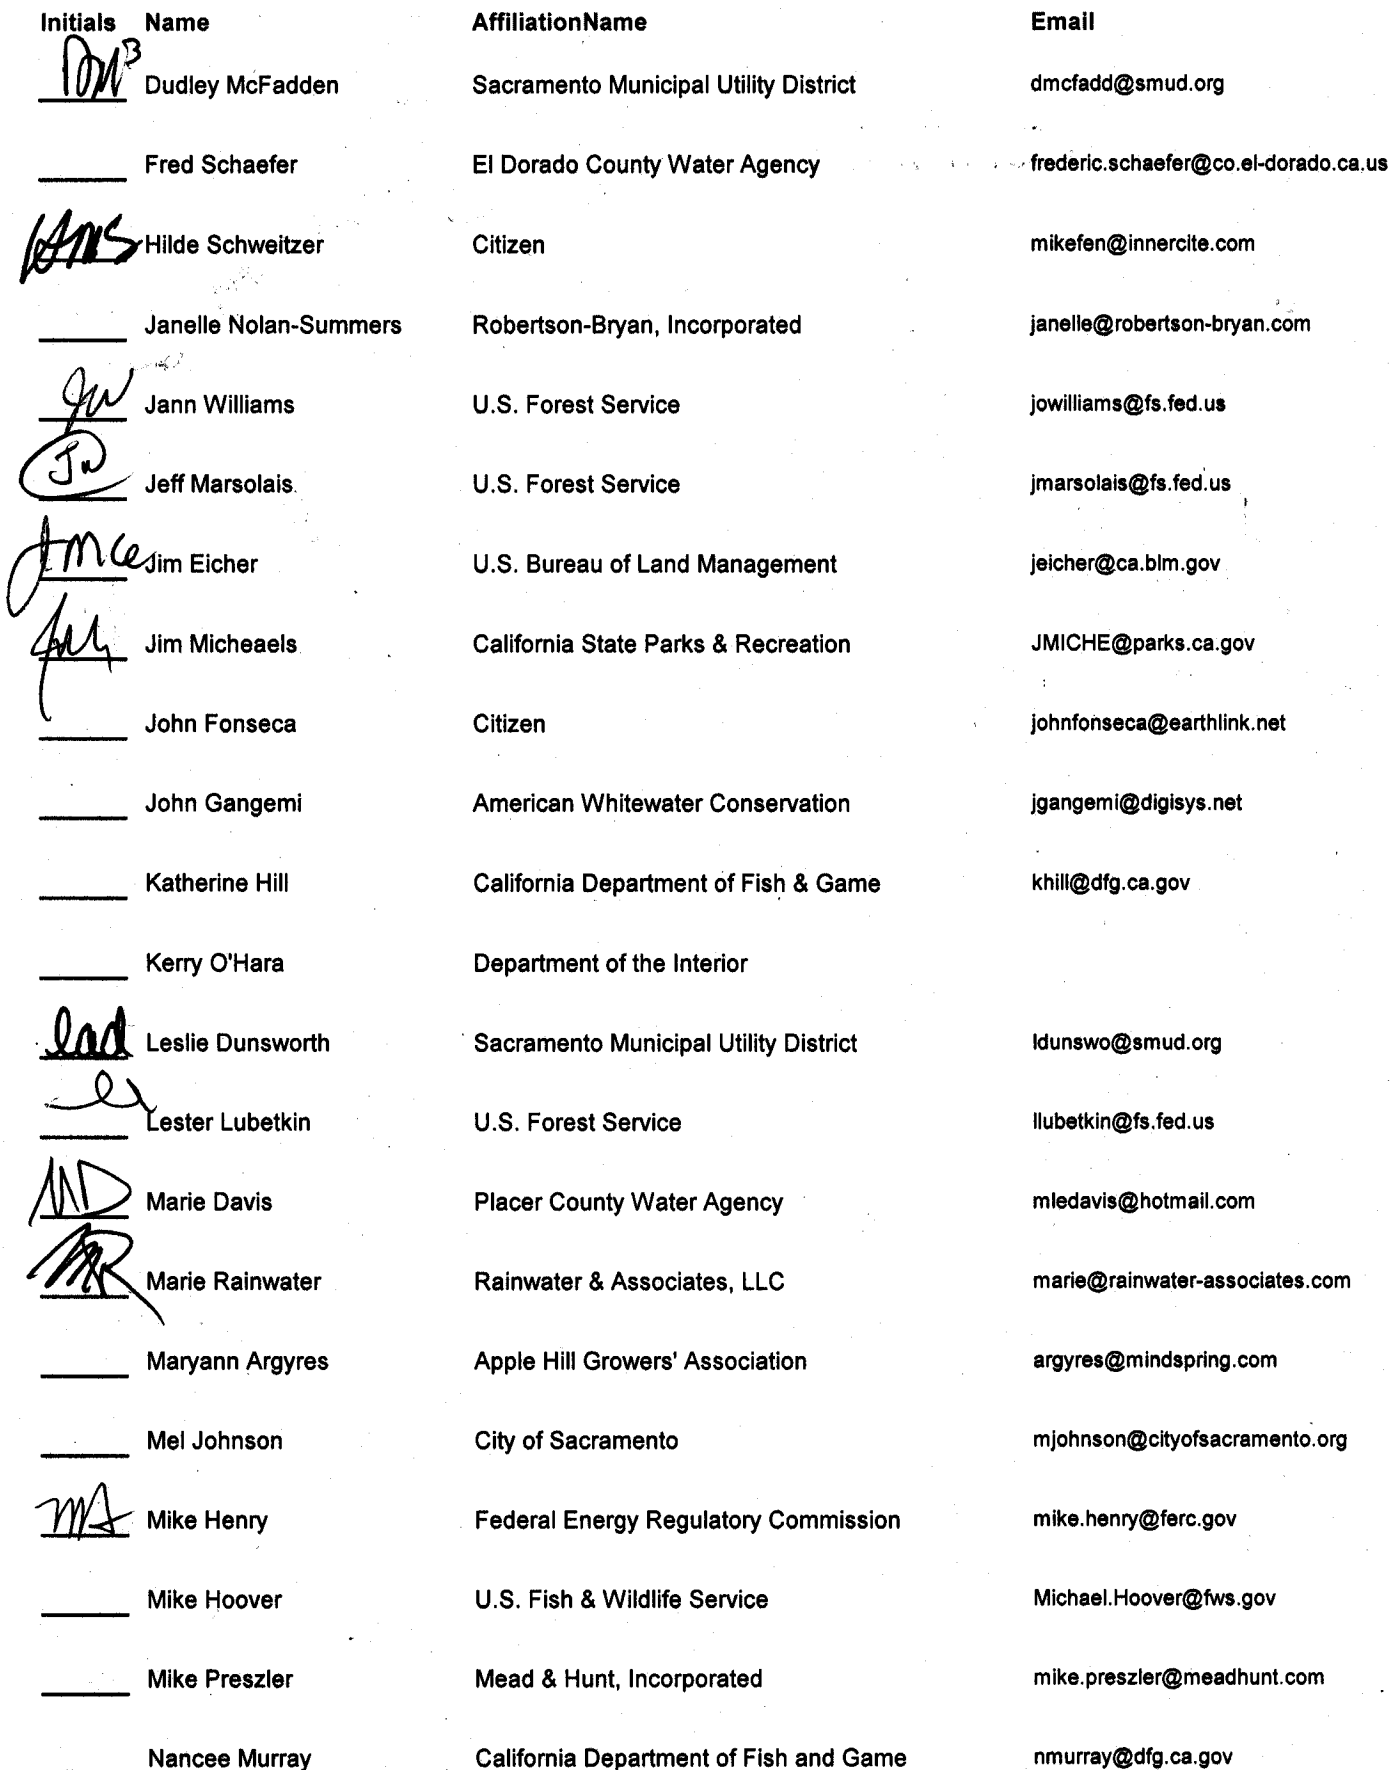 Initials Name AffiliationName Email
DMB Dudley McFadden Sacramento Municipal Utility District dmcfadd@smud.org
Fred Schaefer El Dorado County Water Agency frederic.schaefer@co.el-dorado.ca.us
HMS Hilde Schweitzer Citizen mikefen@innercite.com
Janelle Nolan-Summers Robertson-Bryan, Incorporated janelle@robertson-bryan.com
JW Jann Williams U.S. Forest Service jowilliams@fs.fed.us
Jeff Marsolais U.S. Forest Service jmarsolais@fs.fed.us
Jim Eicher U.S. Bureau of Land Management jeicher@ca.blm.gov
Jim Micheaels California State Parks & Recreation JMICHE@parks.ca.gov
John Fonseca Citizen johnfonseca@earthlink.net
John Gangemi American Whitewater Conservation jgangemi@digisys.net
Katherine Hill California Department of Fish & Game khill@dfg.ca.gov
Kerry O'Hara Department of the Interior
lad Leslie Dunsworth Sacramento Municipal Utility District ldunswo@smud.org
Lester Lubetkin U.S. Forest Service llubetkin@fs.fed.us
MD Marie Davis Placer County Water Agency mledavis@hotmail.com
MR Marie Rainwater Rainwater & Associates, LLC marie@rainwater-associates.com
Maryann Argyres Apple Hill Growers' Association argyres@mindspring.com
Mel Johnson City of Sacramento mjohnson@cityofsacramento.org
Mike Henry Federal Energy Regulatory Commission mike.henry@ferc.gov
Mike Hoover U.S. Fish & Wildlife Service Michael.Hoover@fws.gov
Mike Preszler Mead & Hunt, Incorporated mike.preszler@meadhunt.com
Nancee Murray California Department of Fish and Game nmurray@dfg.ca.gov